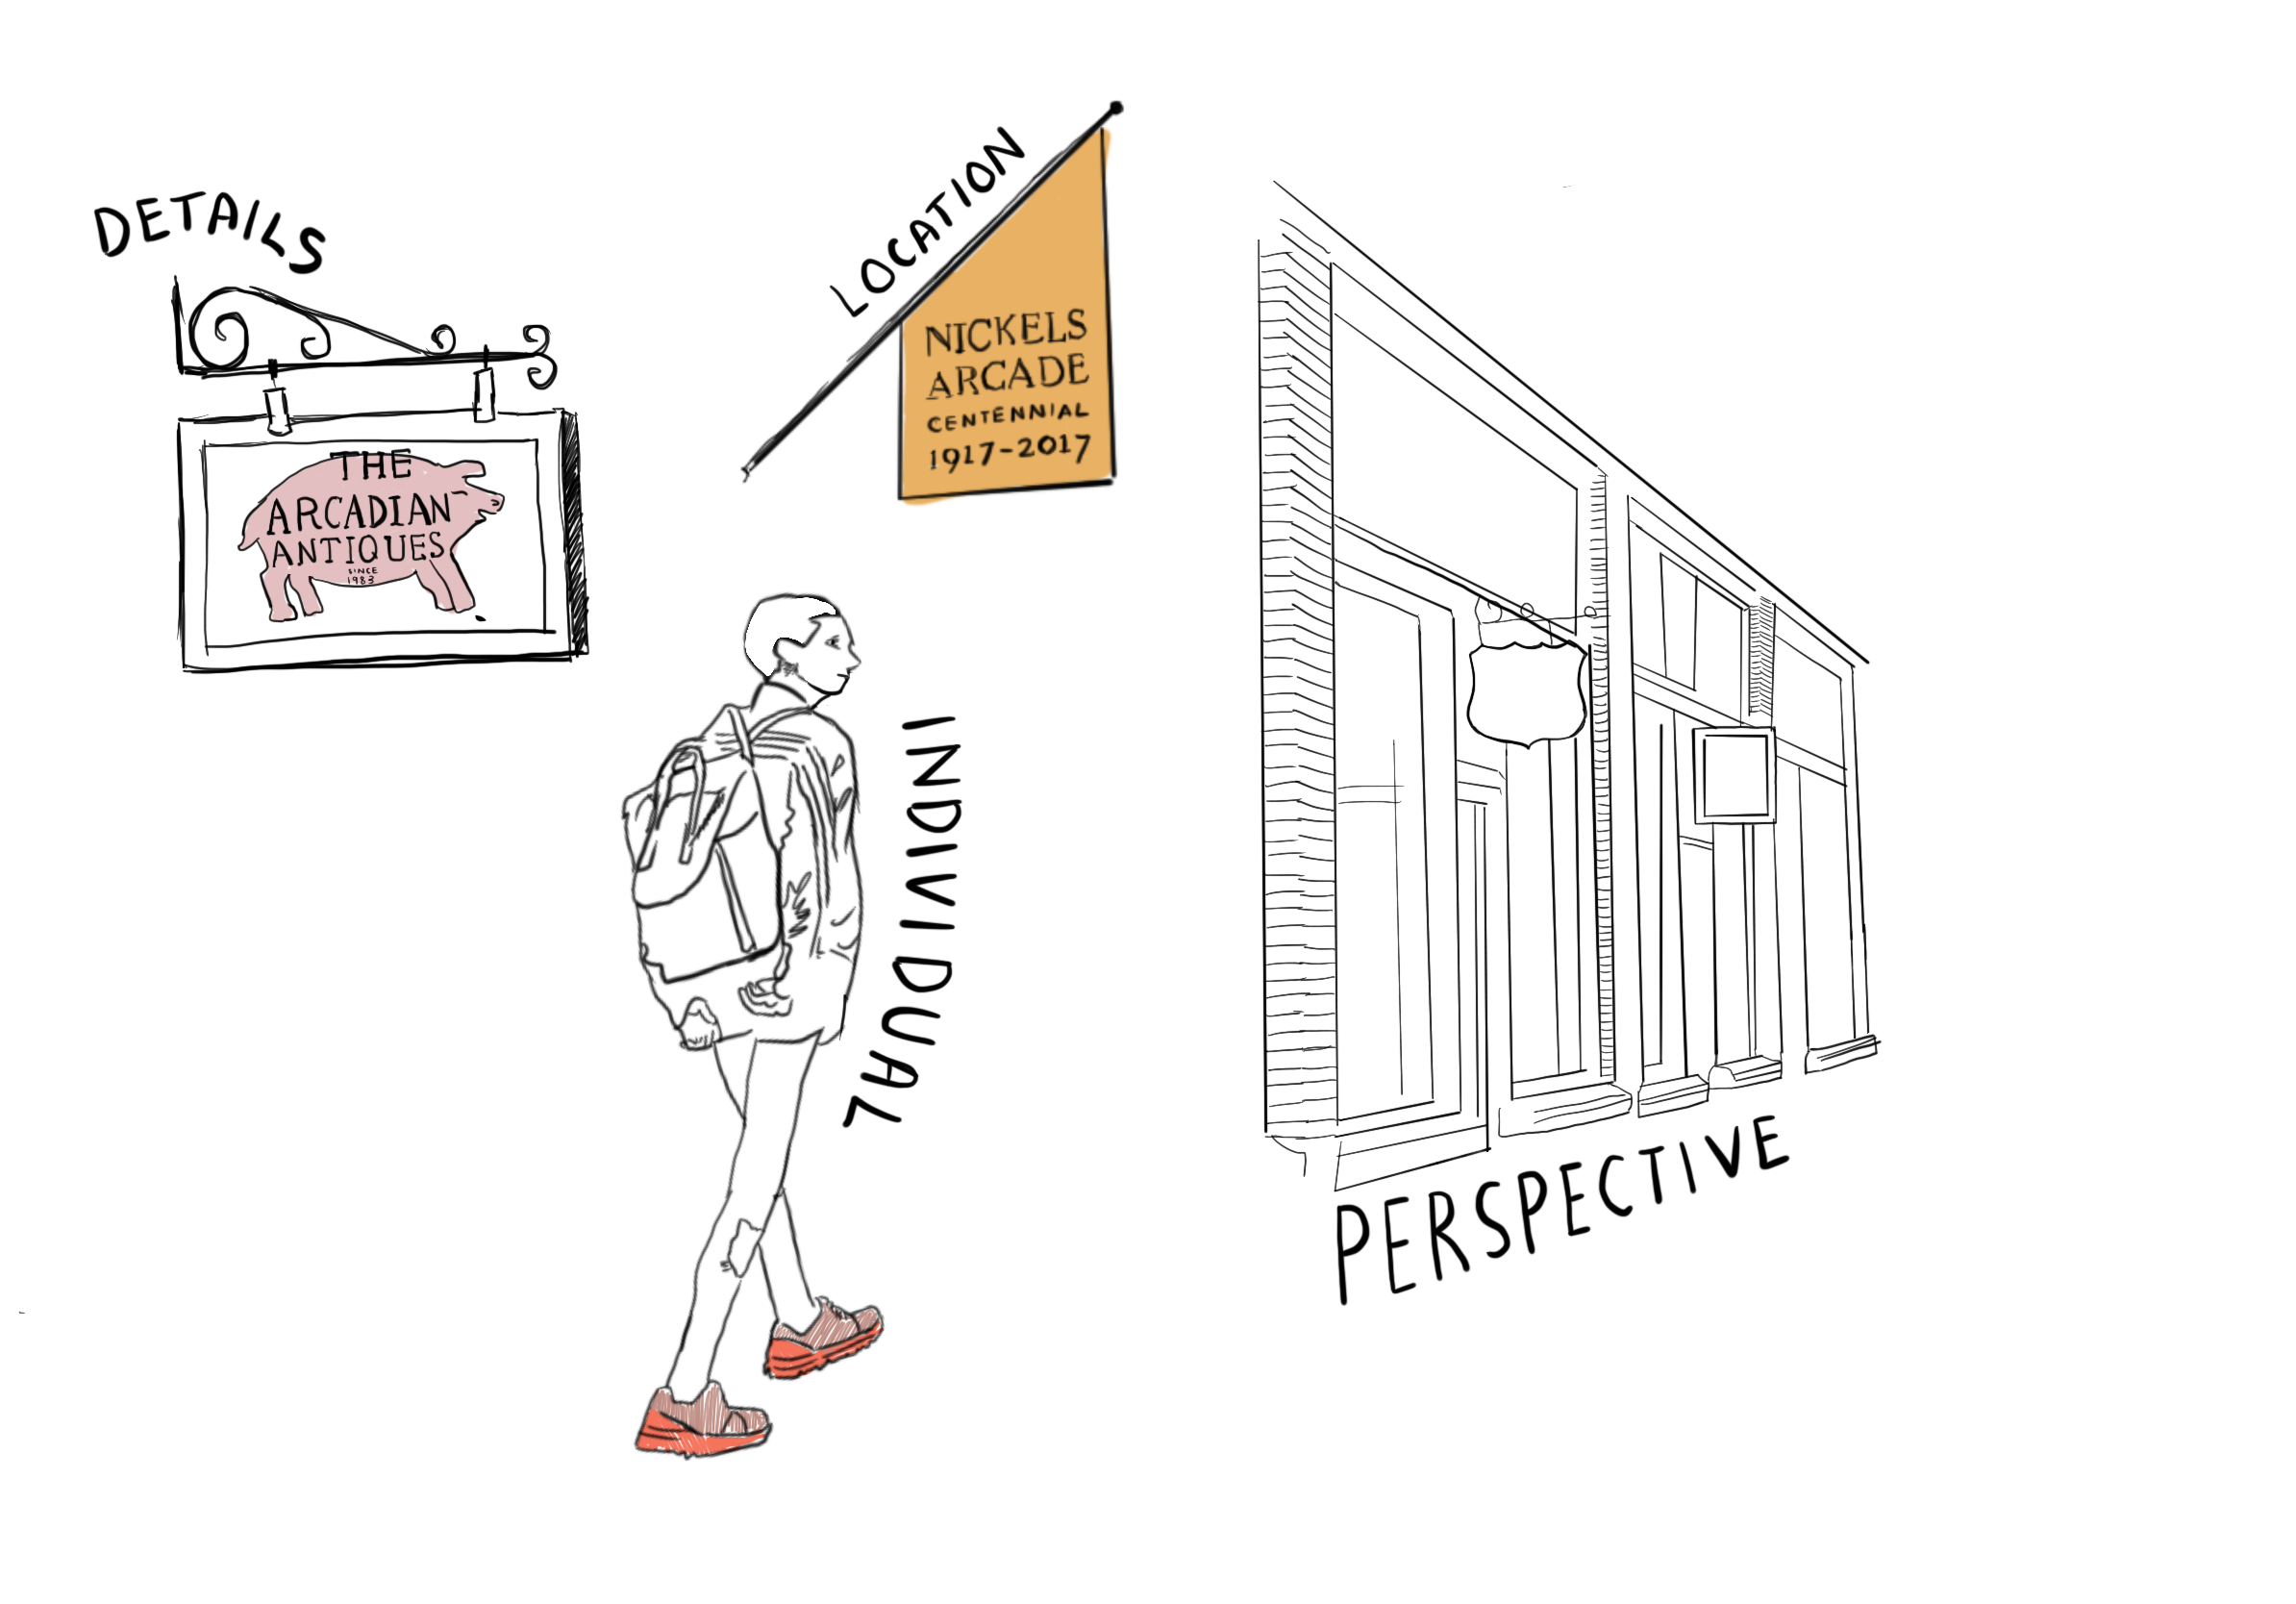 DETAILS
THE
ARCADIAN
ANTIQUES
SINCE
1983
LOCATION
NICKELS
ARCADE
CENTENNIAL
1917-2017
INDIVIDUAL
PERSPECTIVE